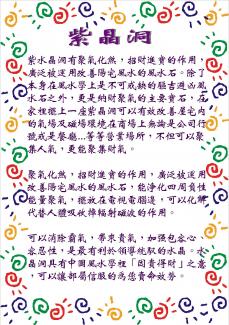 紫晶洞
紫水晶洞有聚氣化煞，招財進寶的作用，
廣泛被運用改善陽宅風水的風水石。除了
本身在風水學上是不可或缺的驅吉避凶風
水石之外，更是納財聚氣的主要寶石，在
家裡擺上一座紫晶洞可以有效改善屋宅內
的氣場及磁場環境在商場上無論是公司行
號或是餐廳...等等營業場所，不但可以聚
集人氣，更能聚集財氣。
聚氣化煞，招財進寶的作用，廣泛被運用
改善陽宅風水的風水石，能淨化四周負性
能量聚氣，擺放在電視電腦邊，可以化解
代替人體吸收掉輻射磁波的作用。
可以消除霸氣，帶來貴氣，加強包容心、
容忍性，是最有利於領導統馭的水晶。水
晶洞具有中國風水學裡「因貴得財」之意
，可以讓部屬信服的為您賣命效勞。